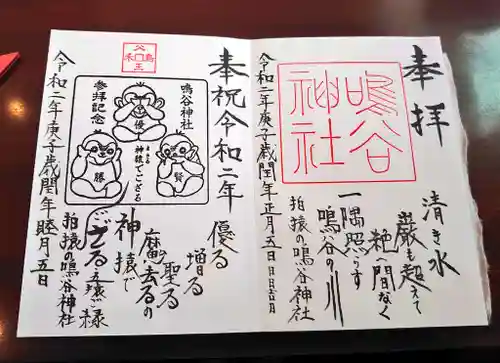 奉拝
清き水
巌も超えて
絶へ間なく
一隅照らす
鳴谷の川
鳴谷
神社
拍猿の鳴谷神社
令和二年庚子歳閏年正月五日
奉祝令和二年
優る
増る
聖る
魔去るの
神猿で
ござる
鳴谷神社
優
神猿でござる
まさる
賢
勝
参拝記念
拍猿の鳴谷神社
令和二年庚子歳閏年睦月五日